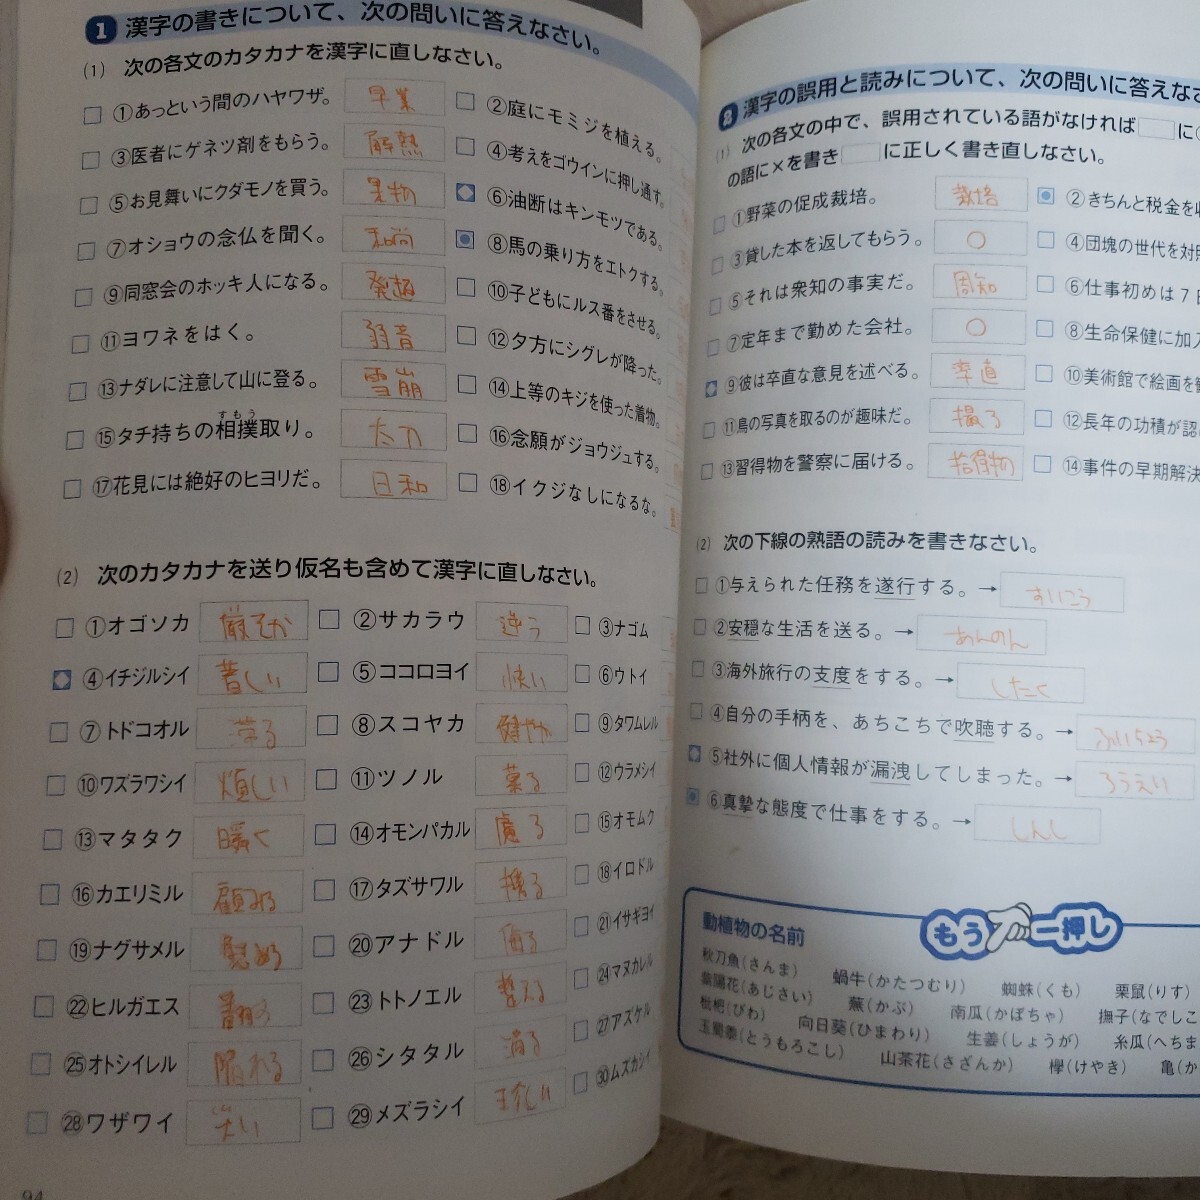 1 漢字の書きについて、次の問いに答えなさい。
(1) 次の各文のカタカナを漢字に直しなさい。
①あっという間のハヤワザ。 早業
②庭にモミジを植える。
③医者にゲネツ剤をもらう。 解熱
④考えをゴウインに押し通す。
⑤お見舞いにクダモノを買う。 果物
⑥油断はキンモツである。
⑦オショウの念仏を聞く。 和尚
⑧馬の乗り方をエトクする。
⑨同窓会のホッキ人になる。 発起
⑩子どもにルス番をさせる。
⑪ヨワネをはく。 弱音
⑫夕方にシグレが降った。
⑬ナダレに注意して山に登る。 雪崩
⑭上等のキジを使った着物。
⑮タチ持ちの相撲取り。 太刀
すもう
⑯念願がジョウジュする。
⑰花見には絶好のヒヨリだ。 日和
⑱イクジなしになるな。
(2) 次のカタカナを送り仮名も含めて漢字に直しなさい。
①オゴソカ 厳そか ②サカラウ 逆う ③ナゴム
④イチジルシイ 著しい ⑤ココロヨイ 快い ⑥ウトイ
⑦トドコオル 滞る ⑧スコヤカ 健やか ⑨タワムレル
⑩ワズラワシイ 煩しい ⑪ツノル 募る ⑫ウラメシイ
⑬マタタク 瞬く ⑭オモンパカル 慮る ⑮オモムク
⑯カエリミル 顧みる ⑰タズサワル 携る ⑱イロドル
⑲ナグサメル ⑳アナドル 侮る ㉑イサギヨイ
㉒ヒルガエス ㉓トトノエル 整える ㉔マヌカレル
㉕オトシイレル 陥れる ㉖シタタル 滴る ㉗アズケル
㉘ワザワイ 災い ㉙メズラシイ 珍しい ㉚ムズカシイ
94
2 漢字の誤用と読みについて、次の問いに答えなさ
(1) 次の各文の中で、誤用されている語がなければ に
の語に×を書き に正しく書き直しなさい。
①野菜の促成裁培。 栽培 ②きちんと税金を
③貸した本を返してもらう。 ○ ④団塊の世代を対
⑤それは衆知の事実だ。 周知 ⑥仕事初めは7
⑦定年まで勤めた会社。 ○ ⑧生命保健に加入
⑨彼は卒直な意見を述べる。 率直 ⑩美術館で絵画を
⑪鳥の写真を取るのが趣味だ。 撮る ⑫長年の功積が認
⑬習得物を警察に届ける。 拾得物 ⑭事件の早期解決
(2) 次の下線の熟語の読みを書きなさい。
①与えられた任務を遂行する。→ すいこう
②安穏な生活を送る。→ あんのん
③海外旅行の支度をする。→ したく
④自分の手柄を、あちこちで吹聴する。→ ふいちょう
⑤社外に個人情報が漏洩してしまった。→ ろうえい
⑥真摯な態度で仕事をする。→ しんし
もう一押し
動植物の名前
秋刀魚(さんま) 蝸牛(かたつむり) 蜘蛛(くも) 栗鼠(りす)
紫陽花(あじさい) 蕪(かぶ) 南瓜(かぼちゃ) 撫子(なでしこ
枇杷(びわ) 向日葵(ひまわり) 生姜(しょうが) 糸瓜(へちま
玉蜀黍(とうもろこし) 山茶花(さざんか) 欅(けやき) 亀(か